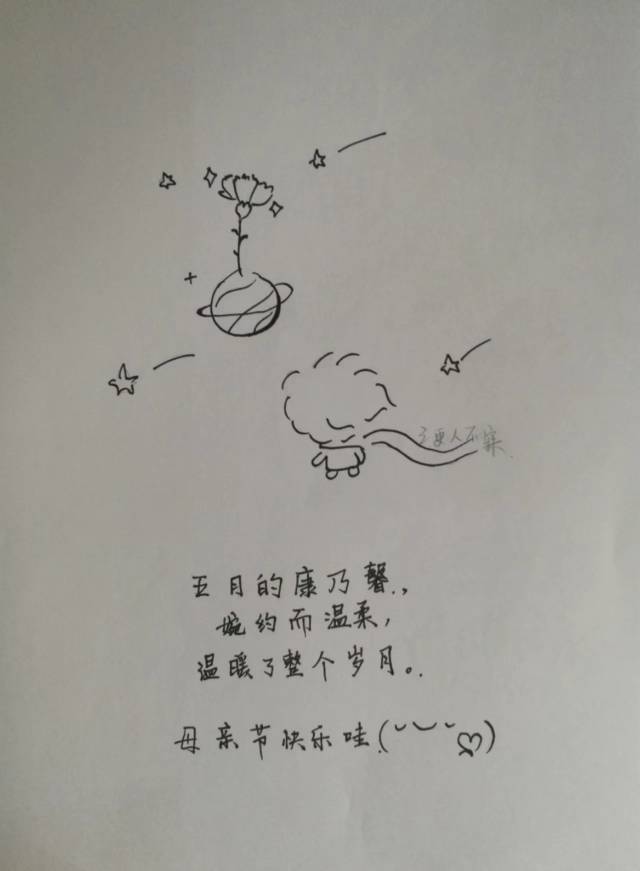 三更人不寐
五月的康乃馨,
婉约而温柔,
温暖了整个岁月。
母亲节快乐哇(˘‿˘♡)